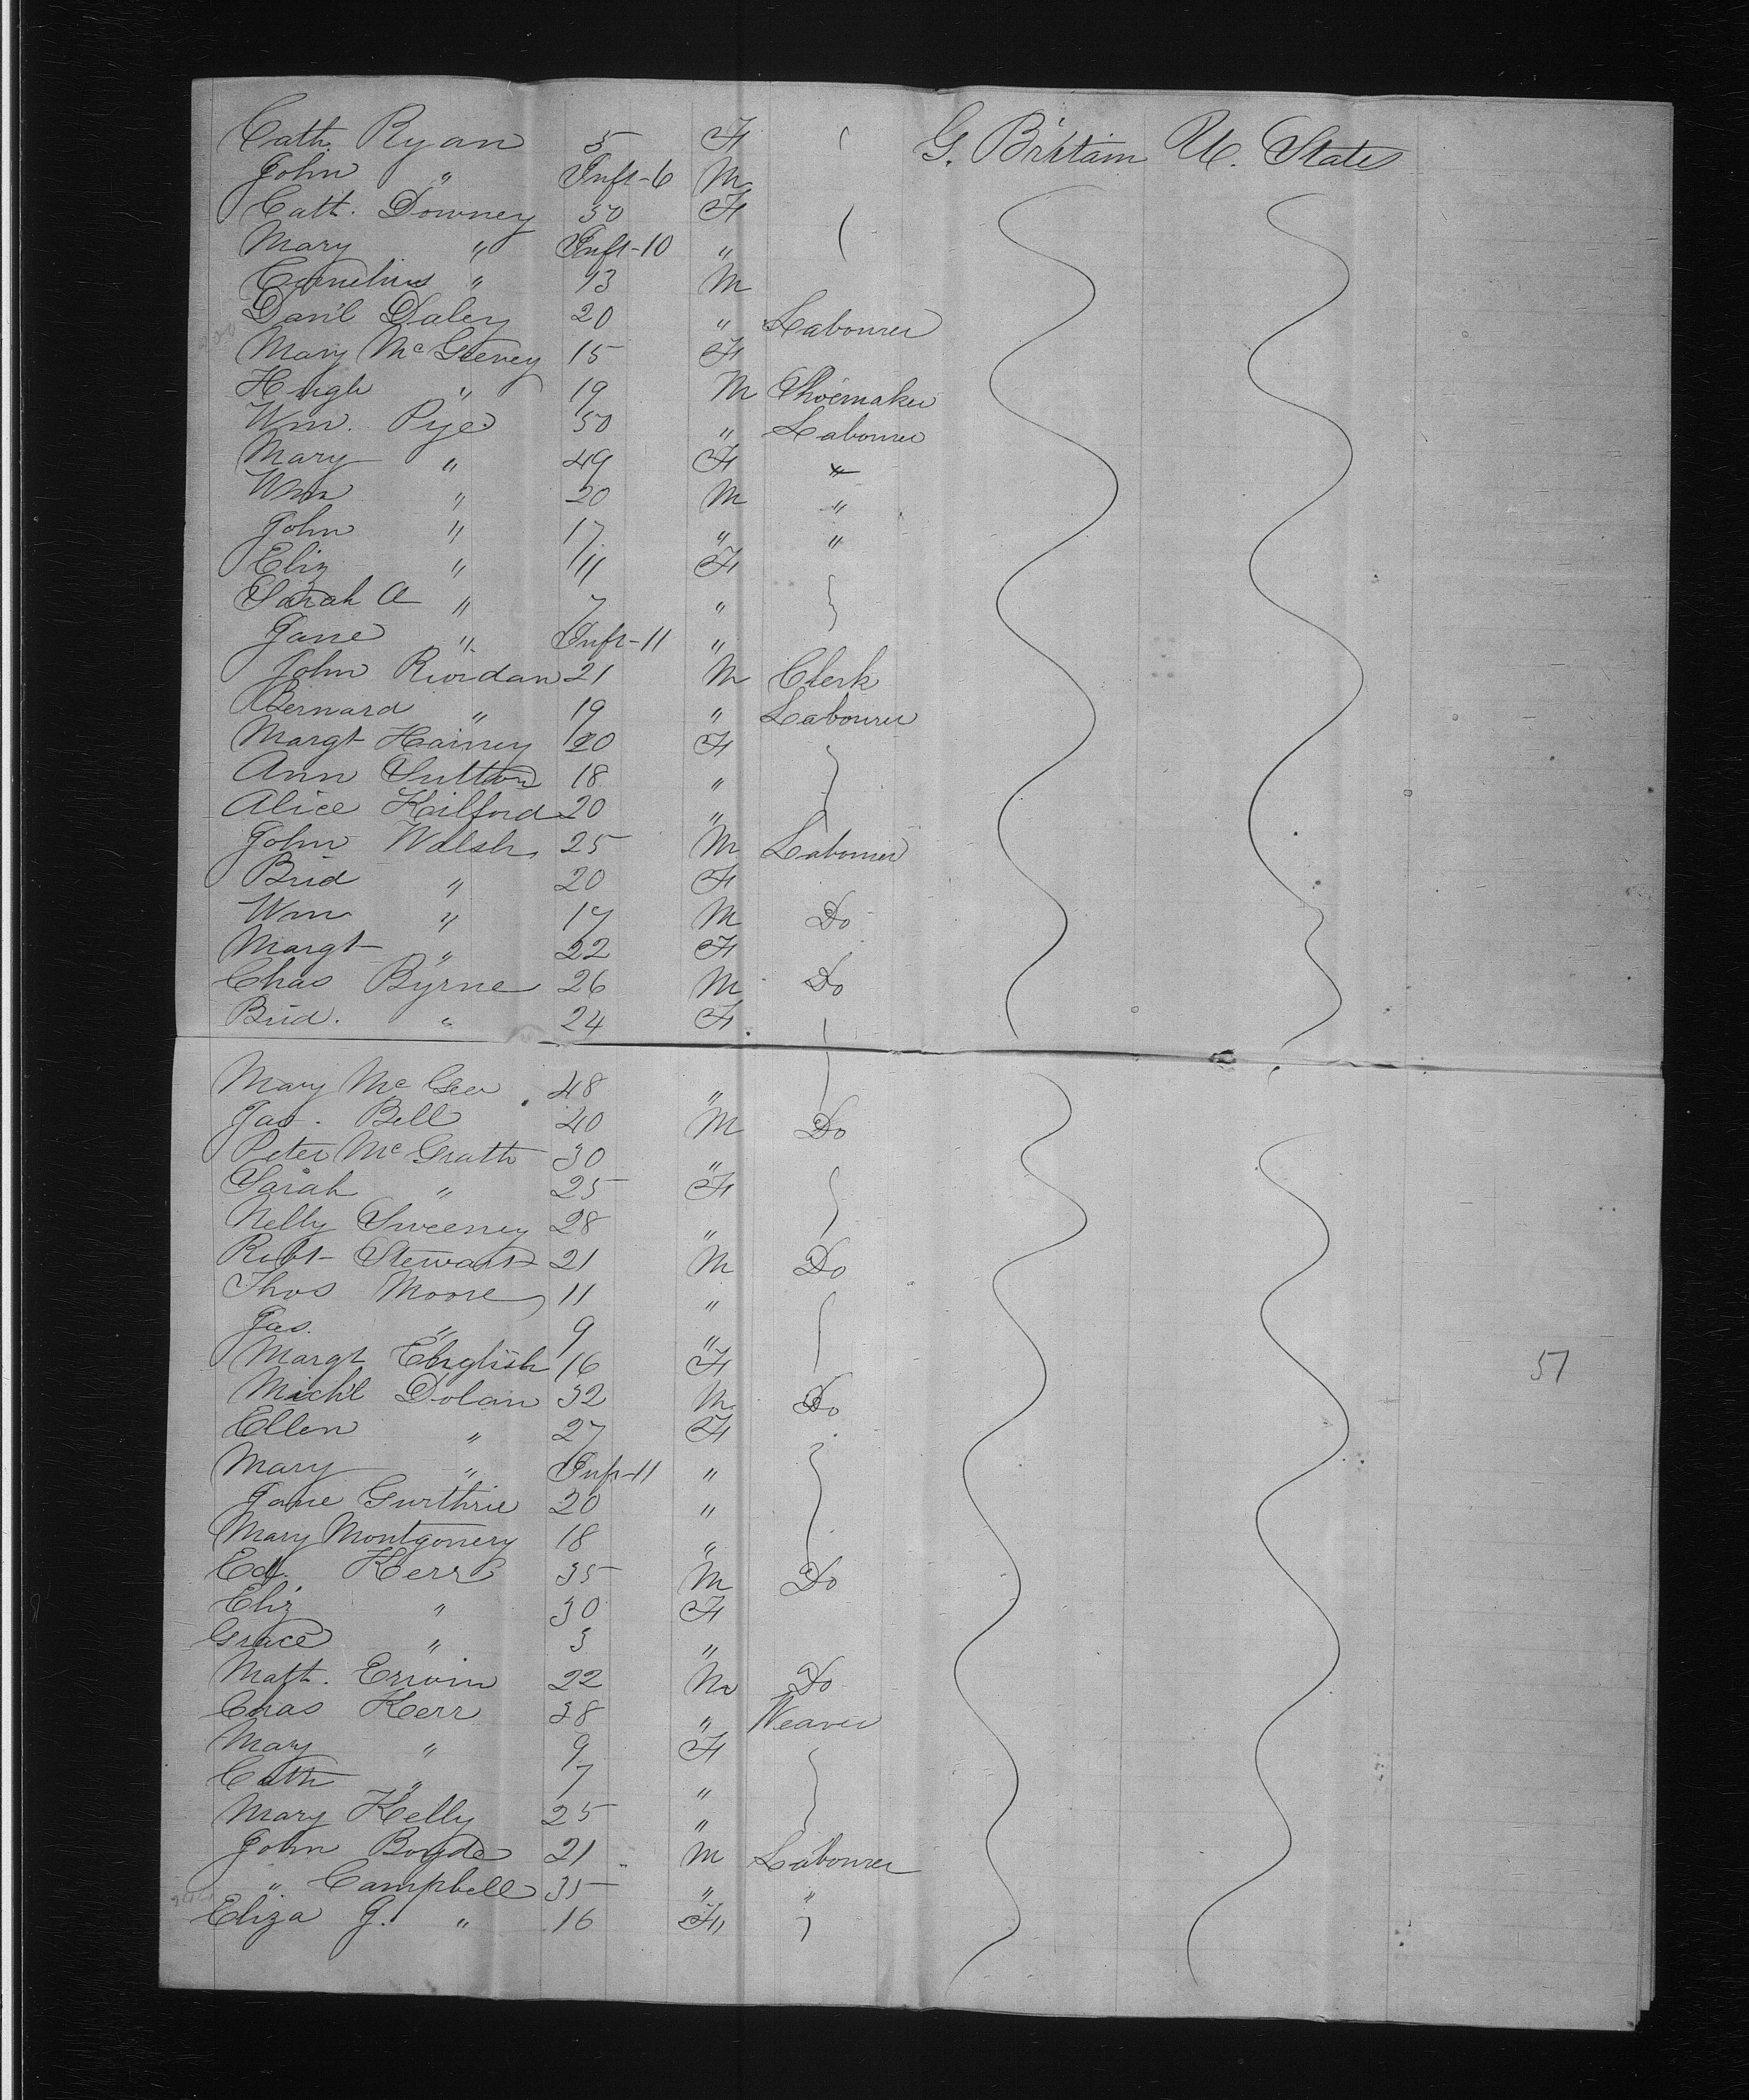 Cath. Ryan 5 F G. Britain U. States
John " Inft-6 M
Cath. Downey 30 F
Mary " Inft-10 "
Cornelius " 13 M
Dan'l Daley 20 " Labourer
Mary McGeeney 15 F
Hugh " 19 M Shoemaker
Wm. Pye 50 " Labourer
Mary " 49 F "
Wm " 20 M "
John " 17 " "
Eliz " 11 F
Sarah A " 7 "
Jane " Inft-11 "
John Riordan 21 M Clerk
Bernard " 19 " Labourer
Margt Hainey 20 F
Ann Sutton 18 "
Alice Kilford 20 "
John Walsh 25 M Labourer
Brid " 20 F
Wm " 17 M Do
Margt " 22 F
Chas Byrne 26 M Do
Brid. " 24 F
Mary McGee 48 "
Jas. Bell 40 M Do
Peter McGrath 30 "
Sarah " 25 F
Nelly Sweeney 28 "
Robt Stewart 21 M Do
Thos Moore 11 "
Jas. " 9 "
Margt English 16 F 51
Mich'l Dolan 32 M Do
Ellen " 27 F
Mary " Inft-11 "
Jane Gurthrie 20 "
Mary Montgomery 18 "
Ed. Kerr 35 M Do
Eliz " 30 F
Grace " 3 "
Matt. Erwin 22 M Do
Chas Kerr 38 " Weaver
Mary " 9 F
Cath " 7 "
Mary Kelly 25 "
John Boyde 21 M Labourer
" Campbell 35 " "
Eliza J. " 16 F